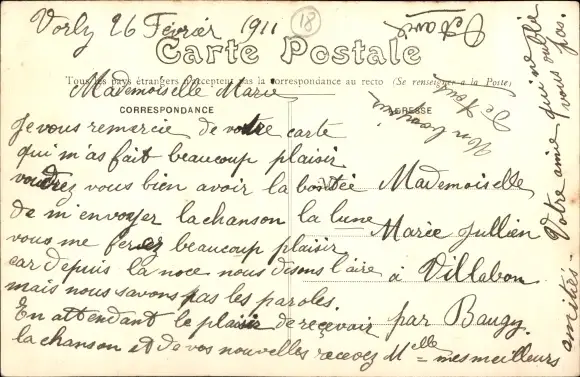 Vorly 26 Février 1911
18
Carte Postale
Tous les pays étrangers n'acceptent pas la correspondance au recto (Se renseigner à la Poste)
Mademoiselle Marie
CORRESPONDANCE
ADRESSE
Je vous remercie de votre carte
qui m'as fait beaucoup plaisir
voudrez vous bien avoir la bontée
de m'envoyer la chanson la lune
vous me ferez beaucoup plaisir
car depuis la noce nous disons l'aire
mais nous savons pas les paroles.
En attendant le plaisir de reçevoir
la chanson et de vos nouvelles recevez Melle mes meilleurs
amitiés.
Votre amie qui ne
vous oublie pas.
Mademoiselle
Marie Jullien
à Villabon
par Baugy.